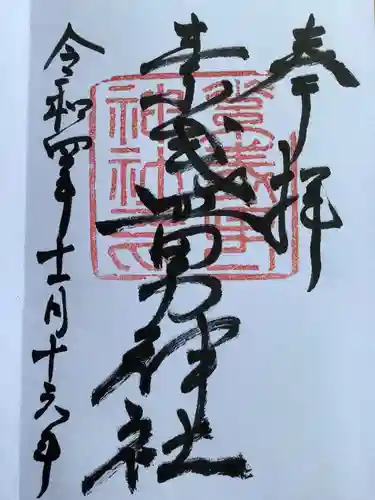 奉拝
素盞男神社
令和四年十一月十六日